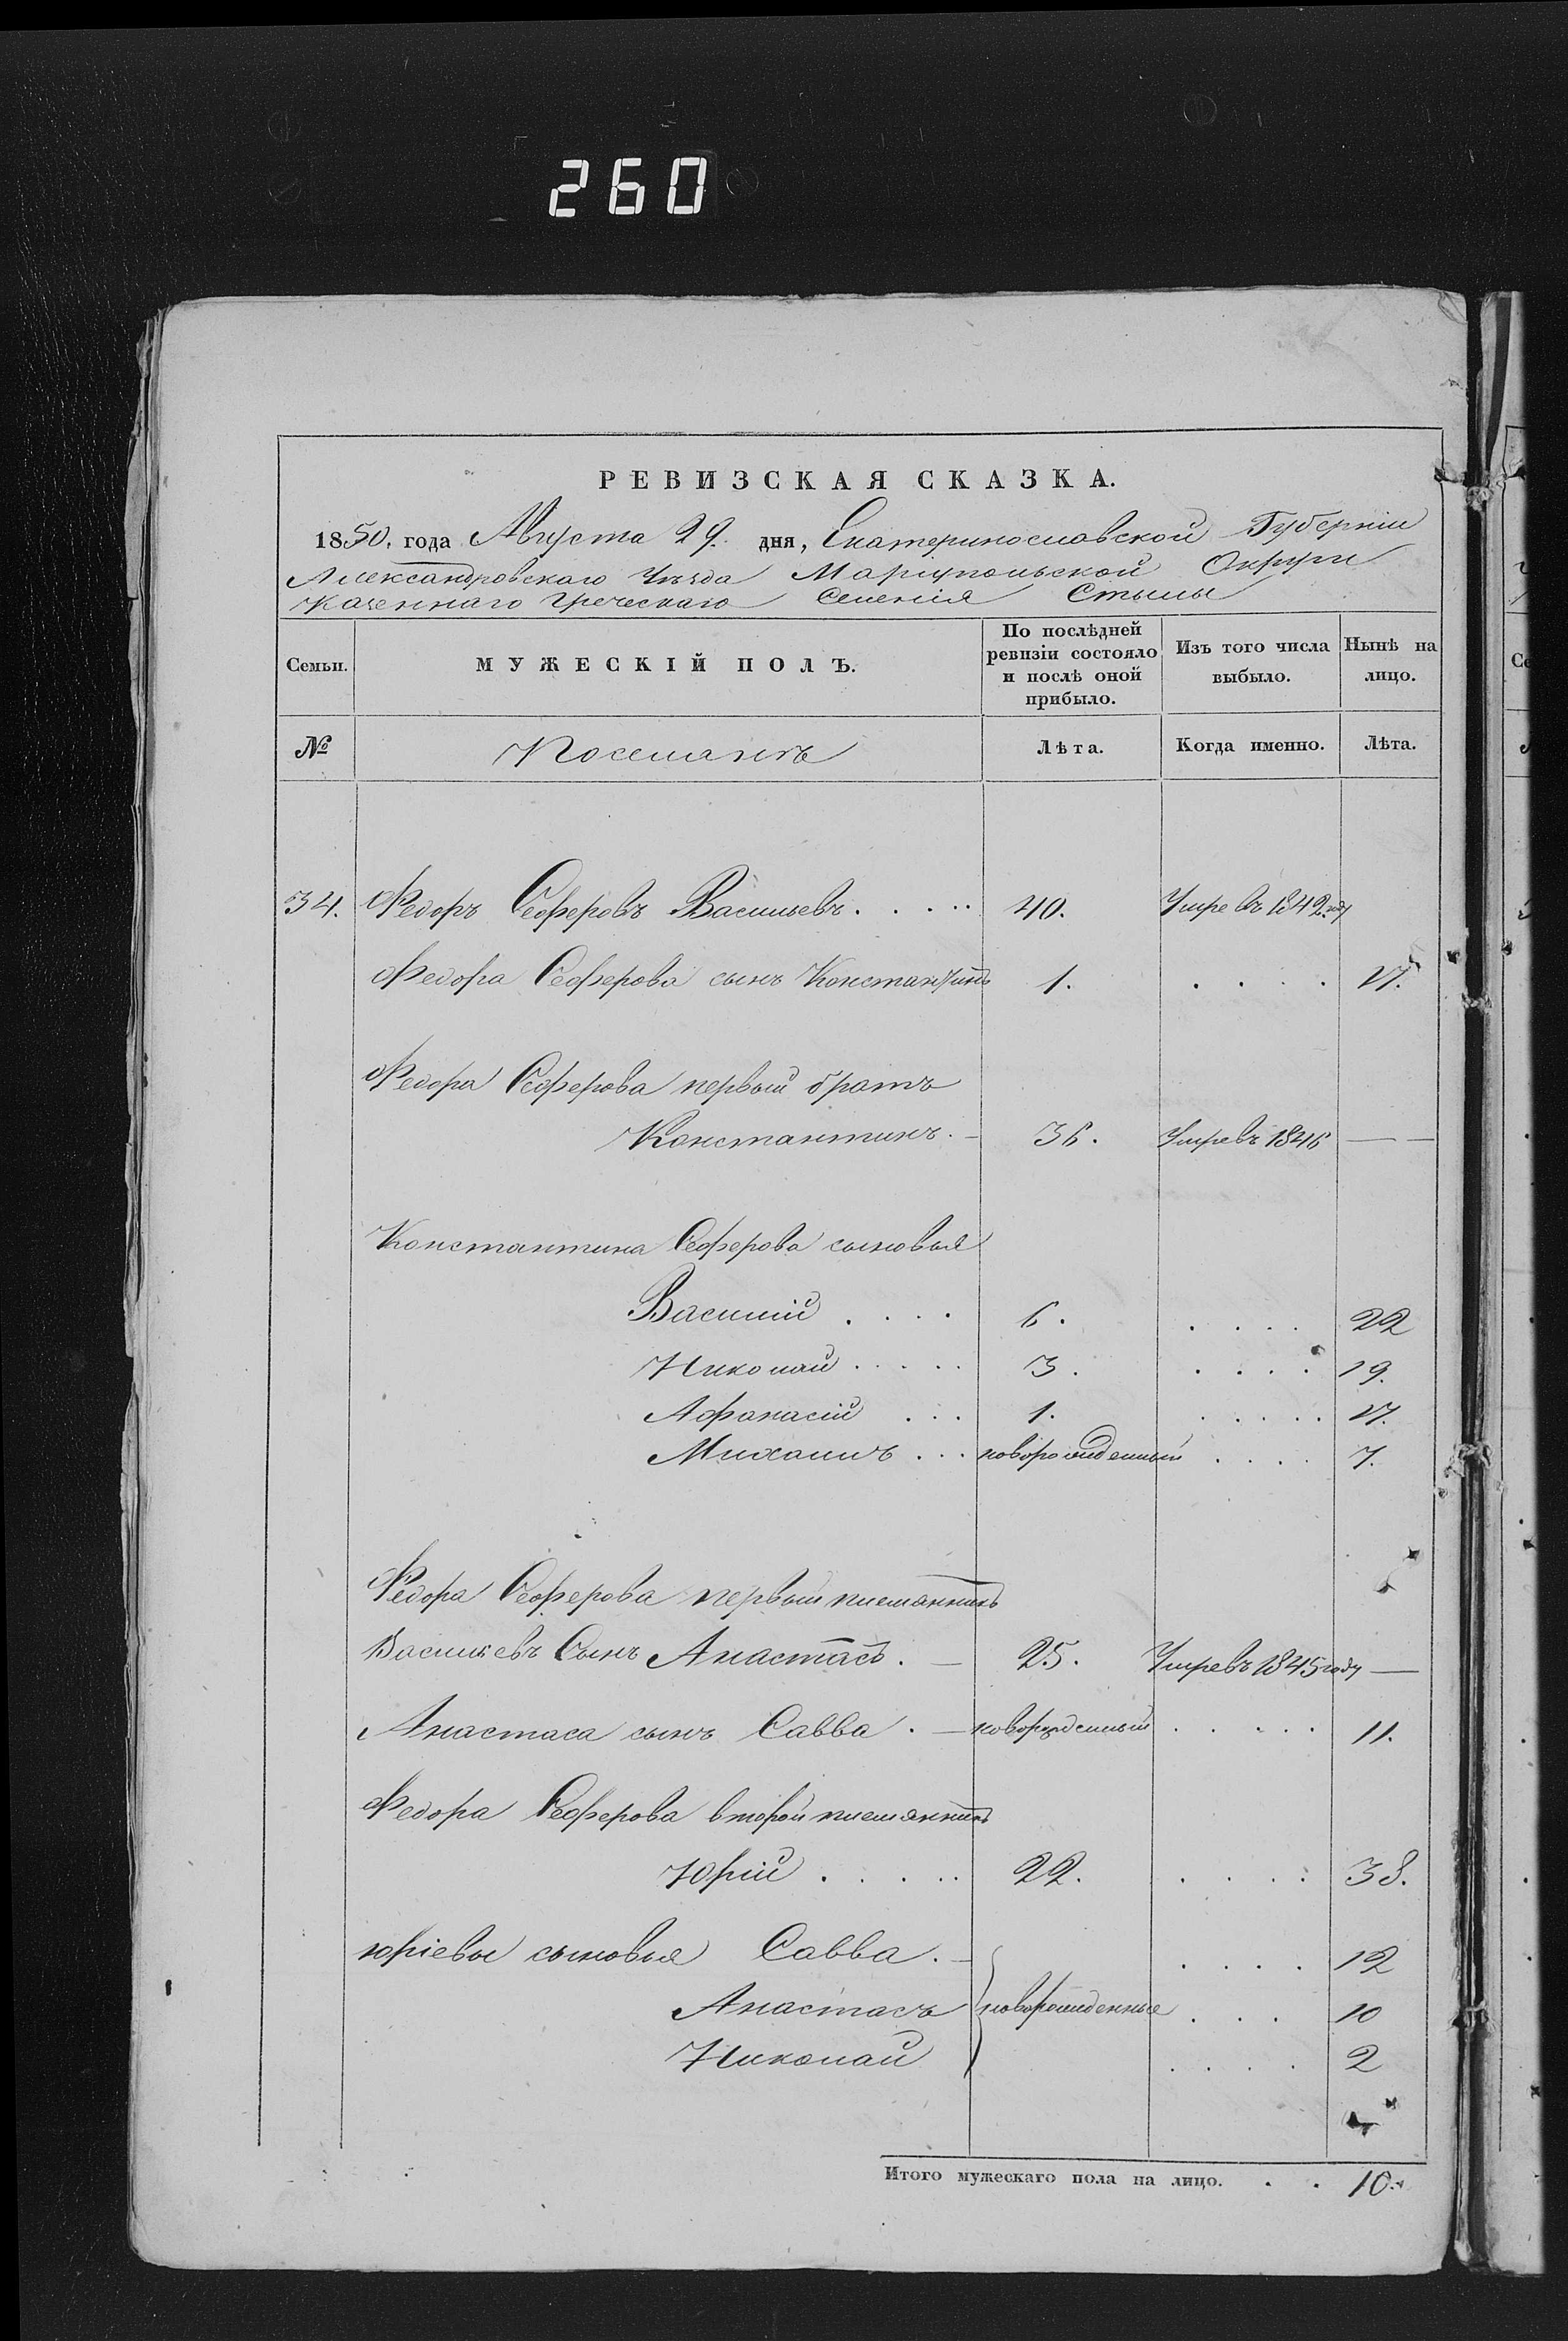 260
РЕВИЗСКАЯ СКАЗКА.
1850. года Августа 29. дня, Екатеринославской Губерніи
Александровскаго Уѣзда Маріупольской Округи
Казеннаго Греческаго Селенія Стылы
Семьи. МУЖЕСКІЙ ПОЛЪ. По послѣдней ревизіи состояло и послѣ оной прибыло. Изъ того числа выбыло. Нынѣ на лицо.
№ Поселянъ Лѣта. Когда именно. Лѣта.
34. Федоръ Сеферовъ Васильевъ..... 40. Умре въ 1842 году
Федора Сеферова сынъ Константинъ 1. .... 17.
Федора Сеферова первый братъ
Константинъ. — 36. Умре въ 1846 — —
Константина Сеферова сыновья
Василій .... 6. .... 22
Николай ..... 3. .... 19.
Афанасій ... 1. ..... 17.
Михаилъ ... новорожденный .... 7.
Федора Сеферова первый племянникъ
Васильевъ Сынъ Анастасъ. — 25. Умре въ 1845 году —
Анастаса сынъ Савва. — новорожденный ..... 11.
Федора Сеферова второй племянникъ
Юрій ..... 22. .... 38.
юріевы сыновья Савва. — .... 12
Анастасъ новорожденные ... 10
Николай .... 2
Итого мужескаго пола на лицо. . . 10.